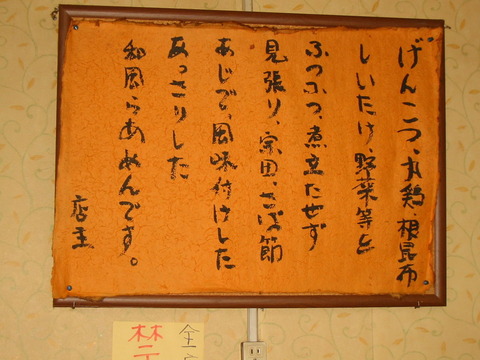 げんこつ、丸鶏、根昆布
しいたけ、野菜等と
ふつふつ、煮立たせず
見張り、宗田、さば節
あじで、風味付けした
あっさりした
和風らあめんです。
店主
禁
全